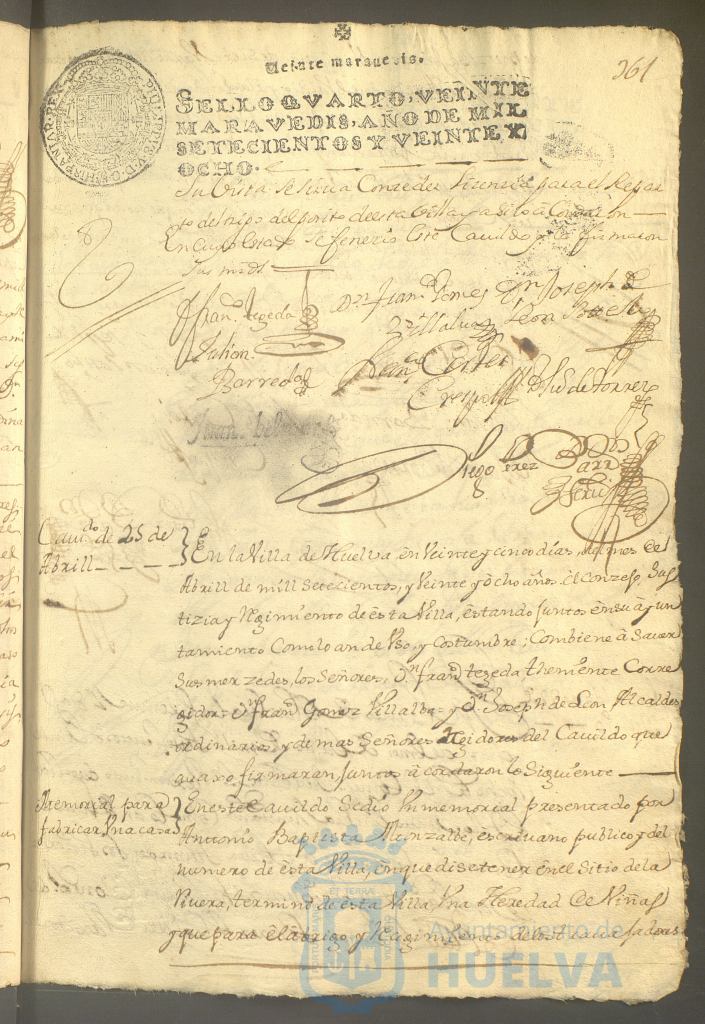 361
Veinte maravedis.
SELLO QVARTO, VEINTE
MARAVEDIS, AÑO DE MIL
SETECIENTOS Y VEINTE Y
OCHO.
Su Vista se sirva Conzeder Lizencia para el Repar
to del trigo del posito de esta Villa y asi lo acordaron
En Cuio estado se fenezio este Cavildo y lo firmaron
sus mrds
Fran.co tegeda Dn Fran.co Gomes Dn Joseph de
Villalva Leon
Julian
Barreda Cortes
Crespo de torres
Diego Perez
Cavi.do de 25 de
Abrill
En la Villa de Huelva, en Veinte y cinco dias, del mes de
Abrill de mill setecientos, y Veinte y ocho años. el Conzejo, Jus
tizia y Regimiento de esta Villa, estando juntos en su ayun
tamiento Como lo an de Vso, y Costumbre; Combiene a Saver
sus merzedes, los Señores, Dn fran.co tegeda theniente Corre
gidor Dn fran.co Gomez Villalba y Dn Joseph de Leon Alcaldes
ordinarios, y demas Señores Regidores del Cavildo que
avaxo firmaran juntos acordaron lo Siguiente
Memorial para
fabricar Vna casa
En este Cavildo Se dio Vn memorial presentado por
Antonio Baptista Monzalbe, escrivano publico y del
numero de esta Villa, en que dise tener en el Sitio de la
Rivera, termino de esta Villa Vna Heredad de Viñas
y que para el abrigo, y Regimiento de los travajadores
Ayuntamiento de
HUELVA